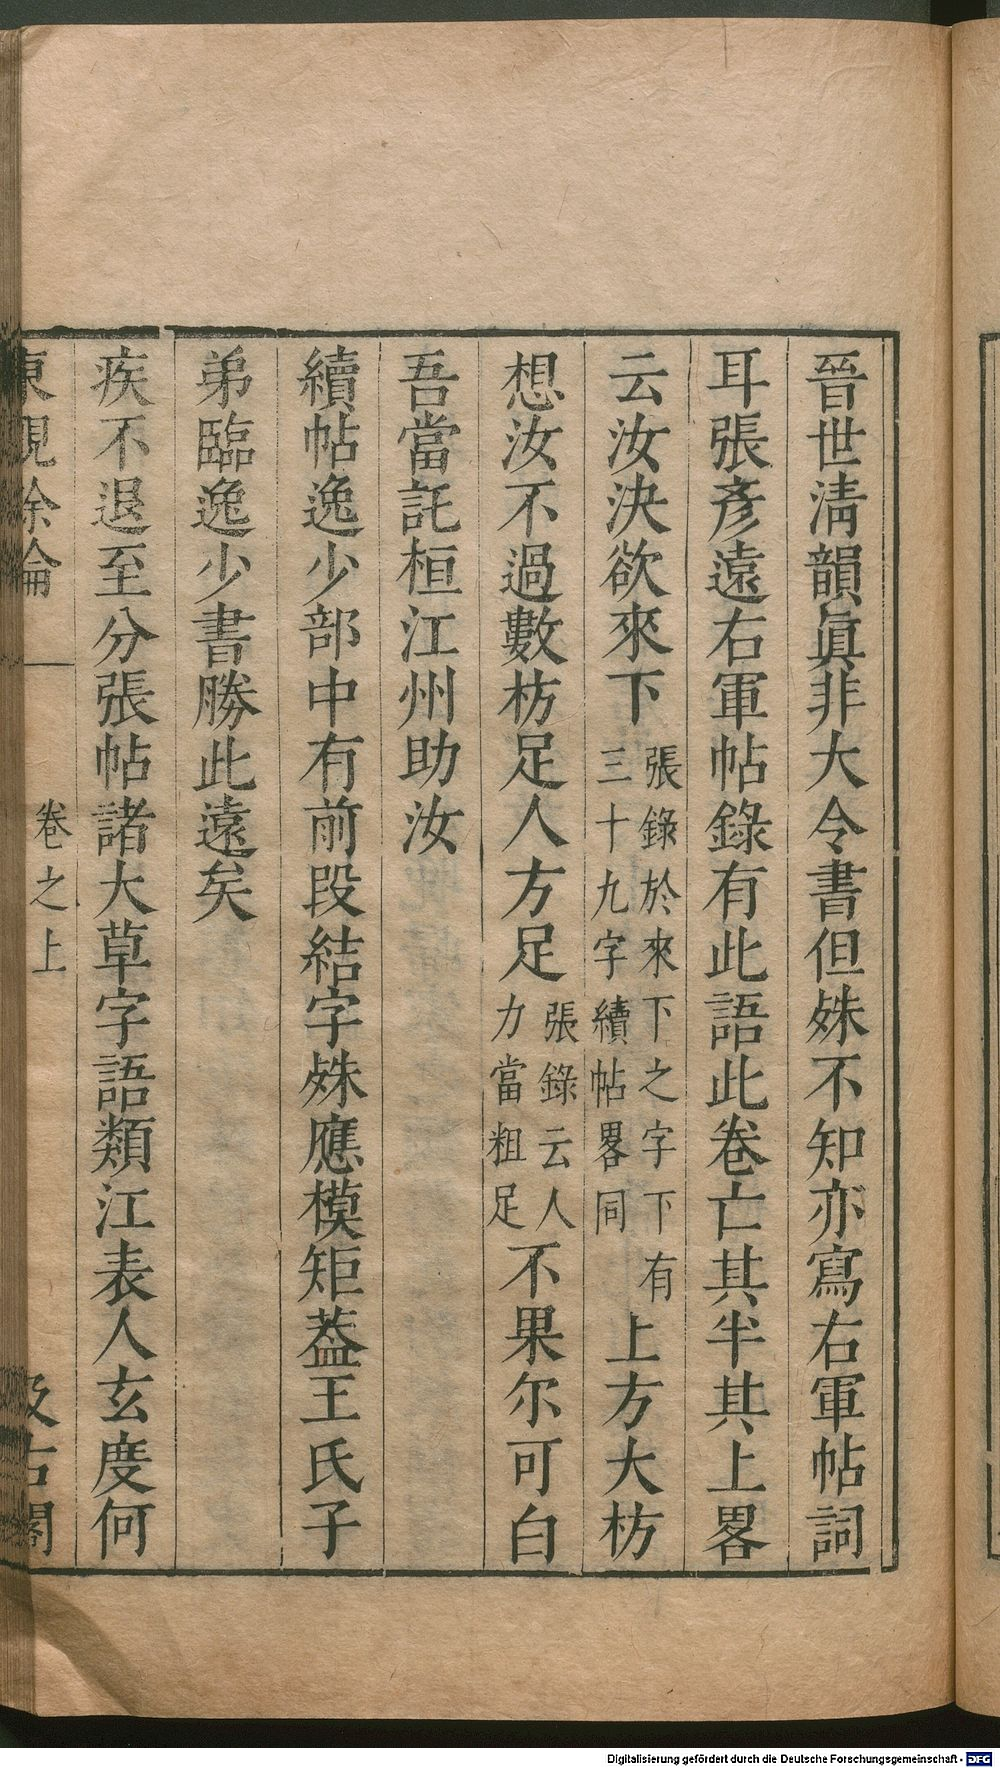 晉世淸韻眞非大令書但殊不知亦寫右軍帖詞
耳張彥遠右軍帖錄有此語此卷亡其半其上畧
云汝決欲來下張錄於來下之字下有三十九字續帖畧同上方大枋
想汝不過數枋足人方足張錄云人力當粗足不果尔可白
吾當託桓江州助汝
續帖逸少部中有前段結字殊應模矩葢王氏子
弟臨逸少書勝此遠矣
疾不退至分張帖諸大草字語類江表人玄度何
東觀餘論 卷之上 汲古閣
Digitalisierung gefördert durch die Deutsche Forschungsgemeinschaft - DFG